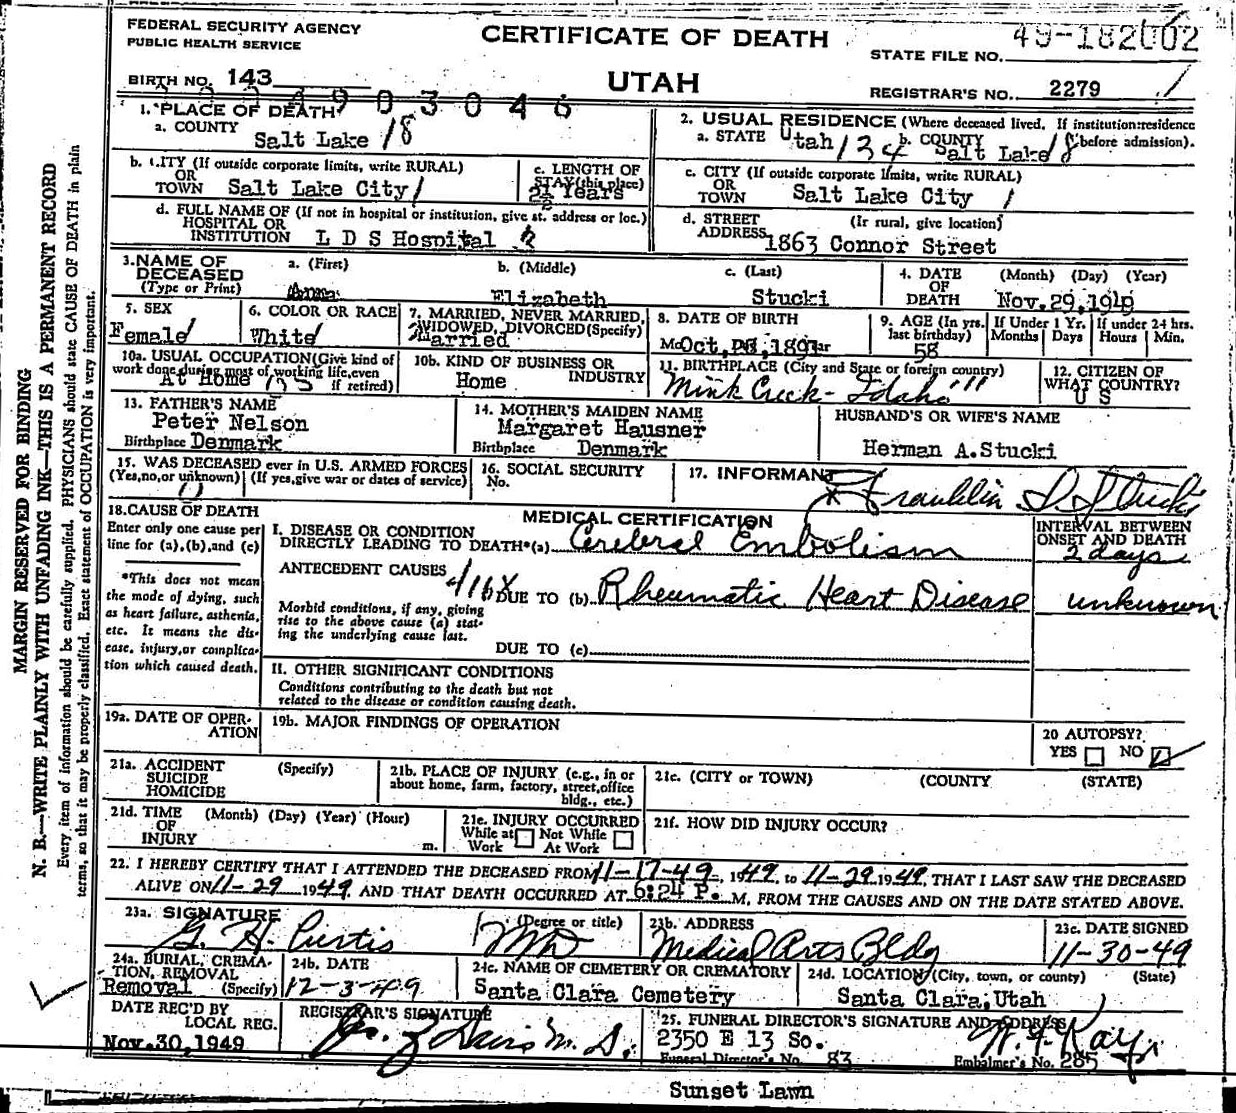 FEDERAL SECURITY AGENCY
PUBLIC HEALTH SERVICE
CERTIFICATE OF DEATH
STATE FILE NO. 49-182002
BIRTH NO. 143
UTAH
REGISTRAR'S NO. 2279
1. PLACE OF DEATH
a. COUNTY
Salt Lake 18
2. USUAL RESIDENCE (Where deceased lived. If institution:residence before admission).
a. STATE Utah b. COUNTY Salt Lake 18
b. CITY (If outside corporate limits, write RURAL)
OR
TOWN Salt Lake City 1
c. LENGTH OF
STAY (this place)
Years
c. CITY (If outside corporate limits, write RURAL)
OR
TOWN Salt Lake City 1
d. FULL NAME OF (If not in hospital or institution, give st. address or loc.)
HOSPITAL OR
INSTITUTION L D S Hospital
d. STREET (If rural, give location)
ADDRESS 1863 Connor Street
3. NAME OF
DECEASED
(Type or Print)
a. (First) b. (Middle) c. (Last)
Anna Elizabeth Stucki
4. DATE (Month) (Day) (Year)
OF
DEATH Nov. 29, 1949
5. SEX
Female
6. COLOR OR RACE
White
7. MARRIED, NEVER MARRIED,
WIDOWED, DIVORCED (Specify)
Married
8. DATE OF BIRTH
Oct, 1891
9. AGE (In yrs.
last birthday)
58
If Under 1 Yr.
Months Days
If under 24 hrs.
Hours Min.
10a. USUAL OCCUPATION (Give kind of
work done during most of working life, even
if retired)
At Home
10b. KIND OF BUSINESS OR
INDUSTRY
Home
11. BIRTHPLACE (City and State or foreign country)
Mink Creek - Idaho
12. CITIZEN OF
WHAT COUNTRY?
U S
13. FATHER'S NAME
Peter Nelson
Birthplace Denmark
14. MOTHER'S MAIDEN NAME
Margaret Hausner
Birthplace Denmark
HUSBAND'S OR WIFE'S NAME
Herman A. Stucki
15. WAS DECEASED ever in U.S. ARMED FORCES
(Yes,no,or unknown) (If yes,give war or dates of service)
16. SOCIAL SECURITY
No.
17. INFORMANT
Franklin Stucki
18. CAUSE OF DEATH
Enter only one cause per
line for (a),(b),and (c)
*This does not mean
the mode of dying, such
as heart failure, asthenia,
etc. It means the dis-
ease, injury,or complica-
tion which caused death.
MEDICAL CERTIFICATION
INTERVAL BETWEEN
ONSET AND DEATH
I. DISEASE OR CONDITION
DIRECTLY LEADING TO DEATH*(a) Cerebral Embolism 2 days
ANTECEDENT CAUSES
DUE TO (b) Rheumatic Heart Disease unknown
Morbid conditions, if any, giving
rise to the above cause (a) stat-
ing the underlying cause last.
DUE TO (c)
II. OTHER SIGNIFICANT CONDITIONS
Conditions contributing to the death but not
related to the disease or condition causing death.
19a. DATE OF OPER-
ATION
19b. MAJOR FINDINGS OF OPERATION
20 AUTOPSY?
YES NO
21a. ACCIDENT (Specify)
SUICIDE
HOMICIDE
21b. PLACE OF INJURY (e.g., in or
about home, farm, factory, street,office
bldg., etc.)
21c. (CITY or TOWN) (COUNTY) (STATE)
21d. TIME (Month) (Day) (Year) (Hour)
OF
INJURY m.
21e. INJURY OCCURRED
While at Work Not While At Work
21f. HOW DID INJURY OCCUR?
22. I HEREBY CERTIFY THAT I ATTENDED THE DECEASED FROM 11-17-49, 1949, to 11-29 1949, THAT I LAST SAW THE DECEASED
ALIVE ON 11-29 1949 AND THAT DEATH OCCURRED AT 6:24 P. M, FROM THE CAUSES AND ON THE DATE STATED ABOVE.
23a. SIGNATURE (Degree or title)
G. H. Curtis MD
23b. ADDRESS
Medical Arts Bldg
23c. DATE SIGNED
11-30-49
24a. BURIAL, CREMA-
TION, REMOVAL
Removal (Specify)
24b. DATE
12-3-49
24c. NAME OF CEMETERY OR CREMATORY
Santa Clara Cemetery
24d. LOCATION (City, town, or county) (State)
Santa Clara, Utah
DATE REC'D BY
LOCAL REG.
Nov. 30, 1949
REGISTRAR'S SIGNATURE
25. FUNERAL DIRECTOR'S SIGNATURE AND ADDRESS
2350 E 13 So.
Funeral Director's No. 83 Embalmer's No. 285
Sunset Lawn
MARGIN RESERVED FOR BINDING
N. B.—WRITE PLAINLY WITH UNFADING INK—THIS IS A PERMANENT RECORD
Every item of information should be carefully supplied. PHYSICIANS should state CAUSE OF DEATH in plain
terms, so that it may be properly classified. Exact statement of OCCUPATION is very important.